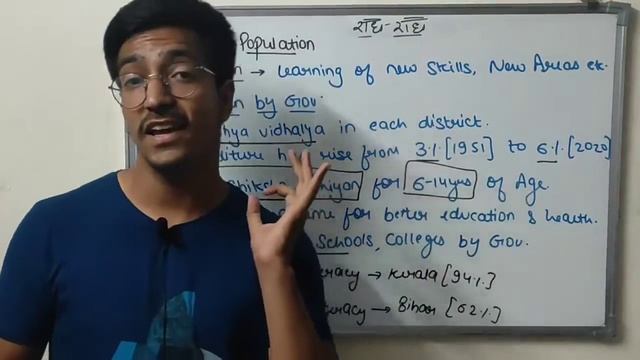 Population
→ Learning of new skills, New Areas etc.
by Gov.
vidhalya in each district.
rise from 3%[1951] to 6%[2020]
for 6-14yrs of Age
for better education & health.
Schools, Colleges by Gov.
→ Kerala [94%]
→ Bihar [62%]